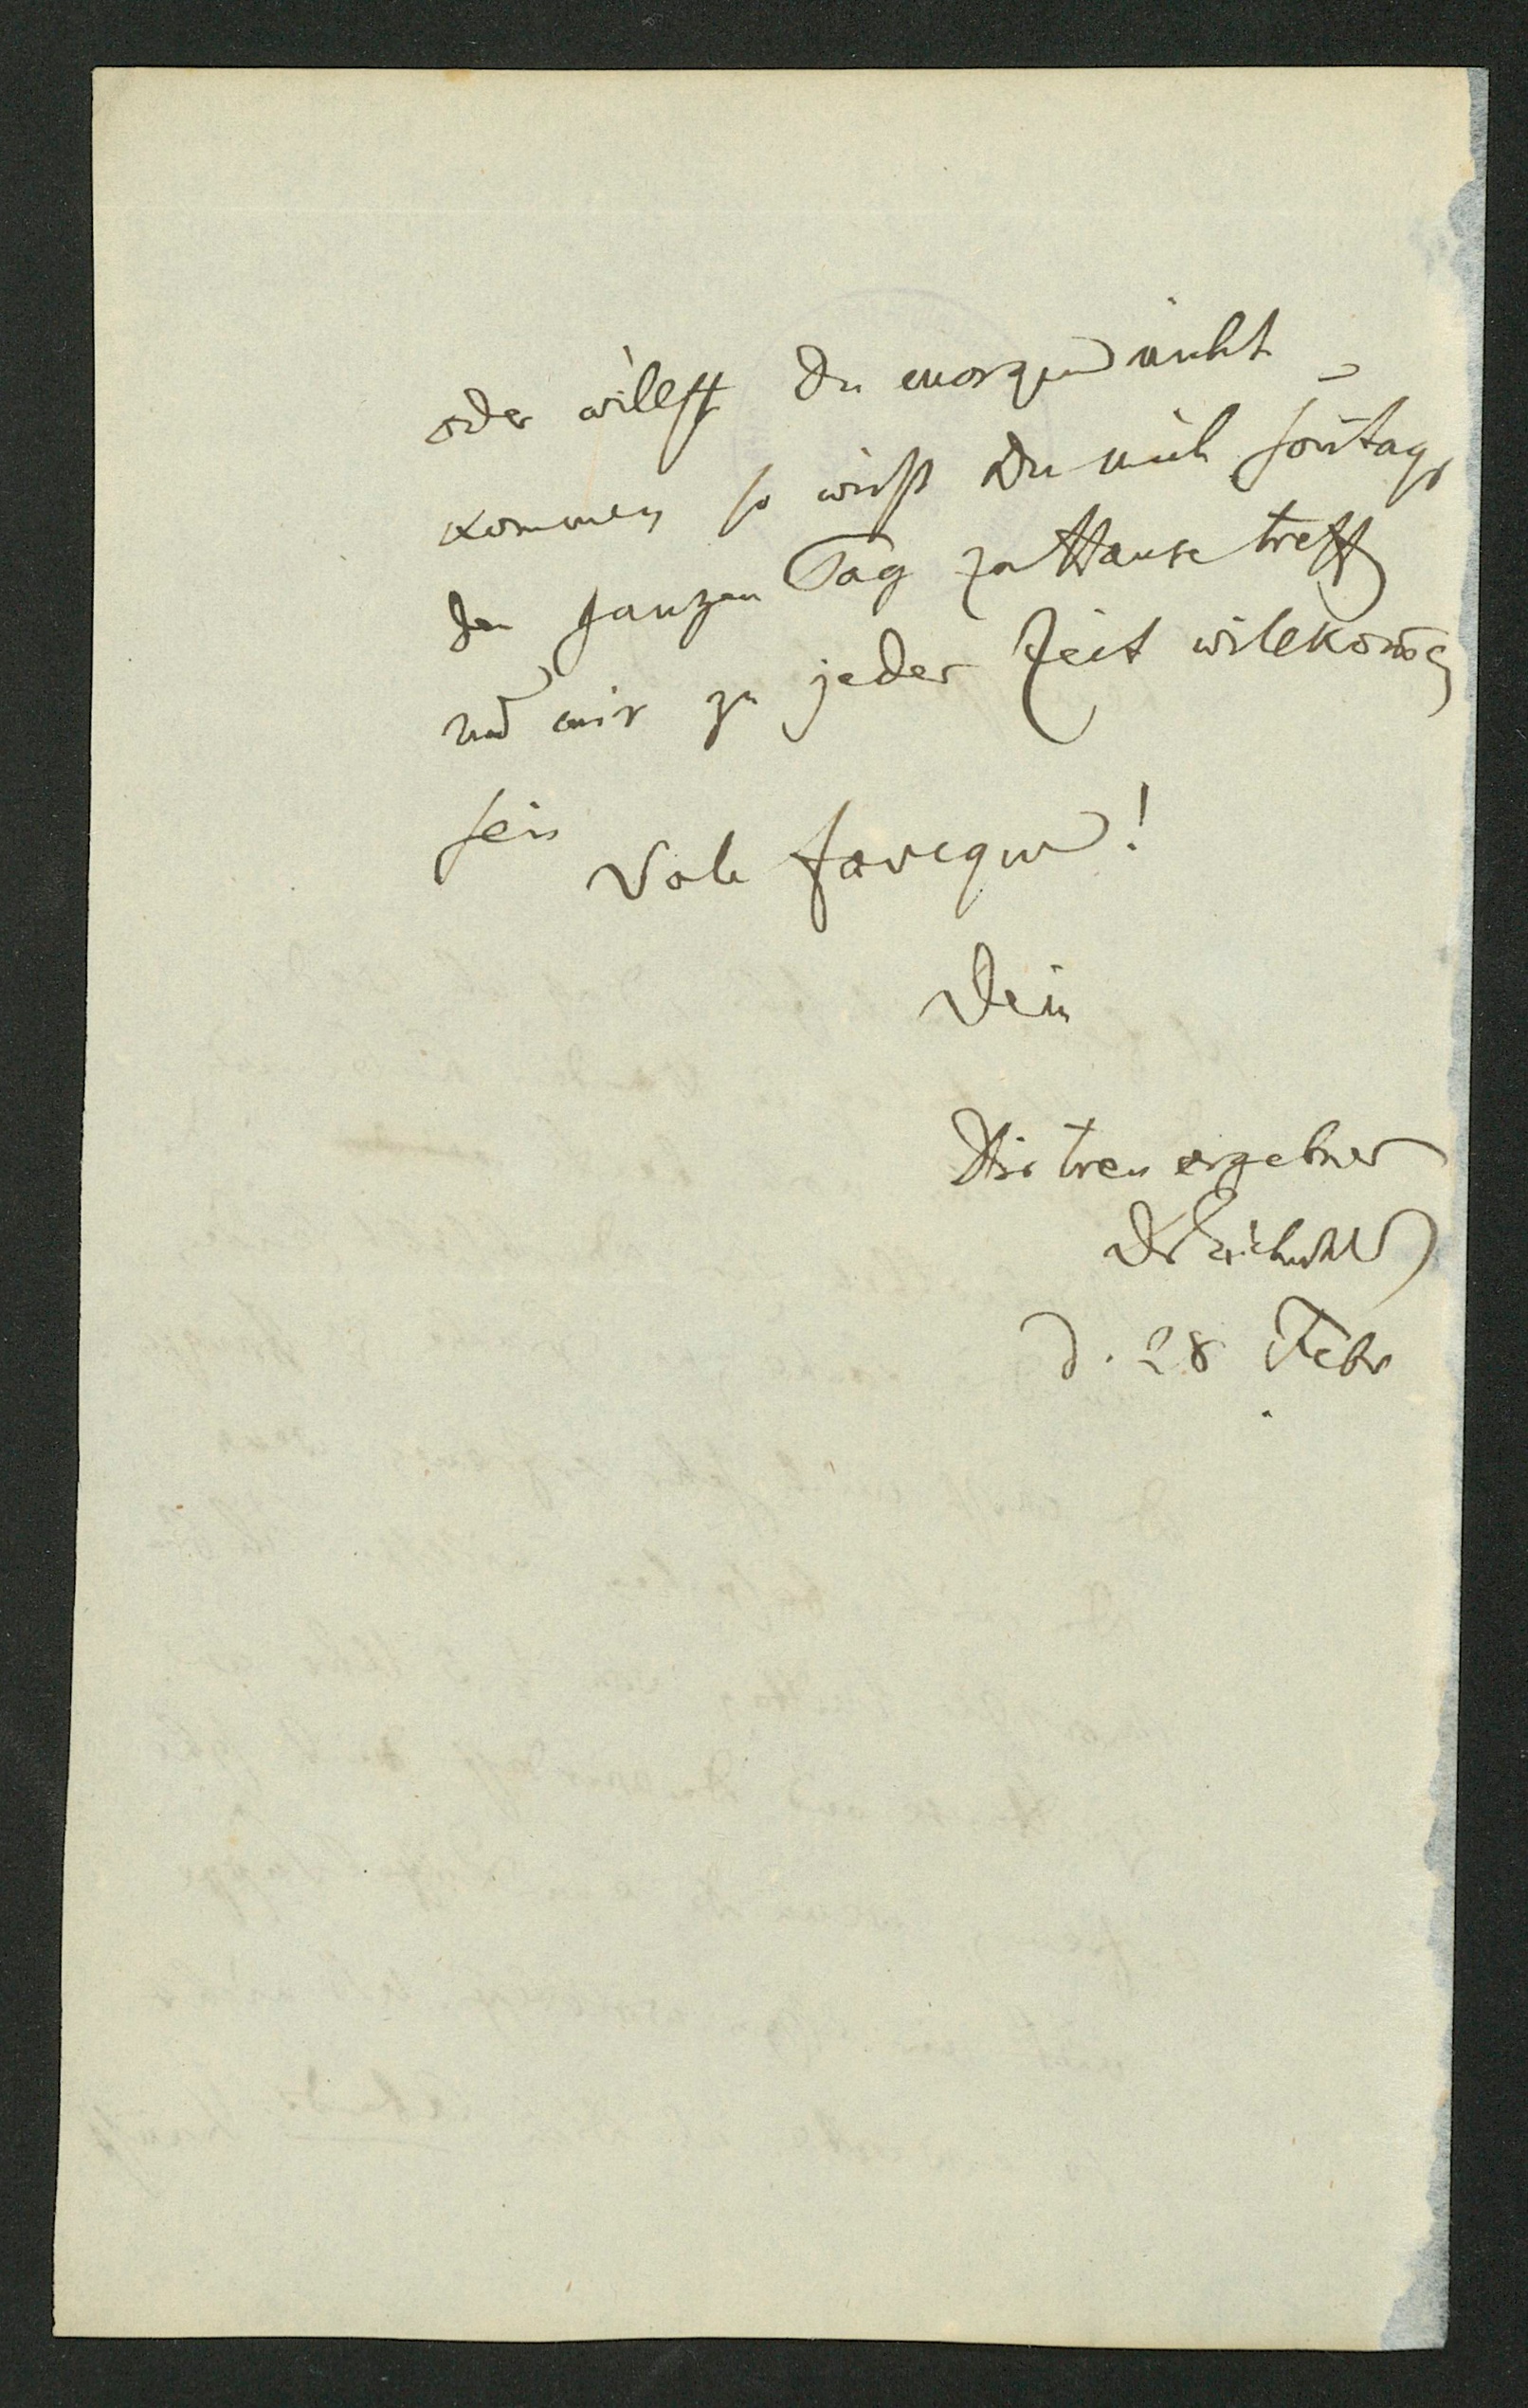 oder willst Du morgen nicht
kommen so wirst Du mich sontags
den ganzen Tag zu Hause treffen
und mir zu jeder Zeit willkomen
sein
Vale faveque!
Dein
Dir treu ergebner
d. 28 Febr